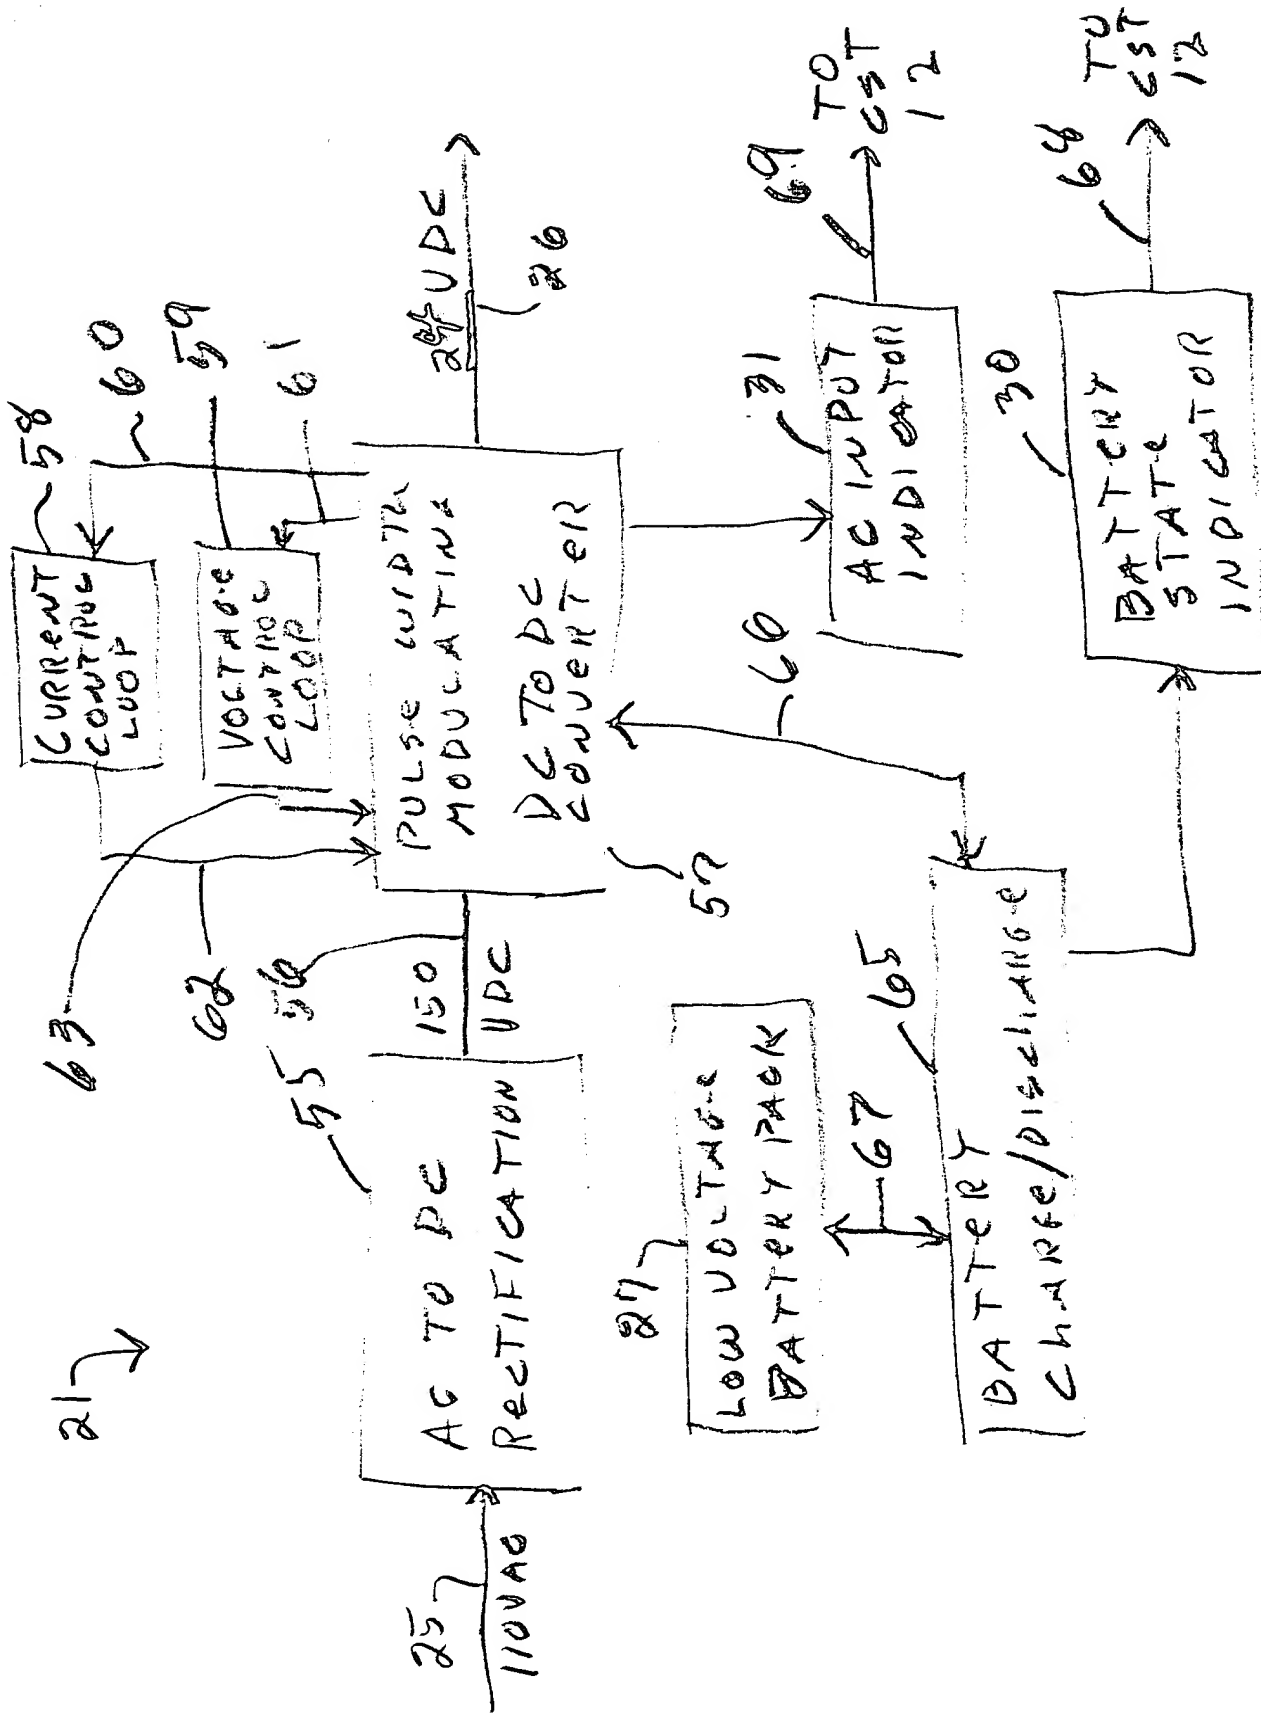 21
25
110VAC
55
AC TO DC
RECTIFICATION
56
150
VDC
63
62
58
CURRENT
CONTROL
LOOP
60
59
VOLTAGE
CONTROL
LOOP
61
PULSE WIDTH
MODULATING
DC TO DC
CONVERTER
57
VDC
26
27
LOW VOLTAGE
BATTERY PACK
67
65
BATTERY
CHARGE/DISCHARGE
66
31
AC INPUT
INDICATOR
69
TO
CST
12
30
BATTERY
STATE
INDICATOR
68
TO
CST
12